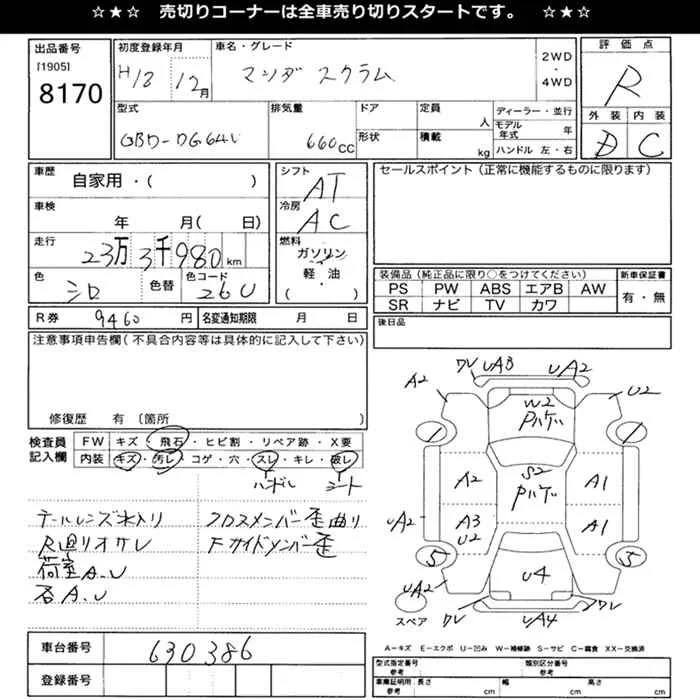 ☆★☆ 売切りコーナーは全車売り切りスタートです。 ☆★☆
出品番号
[1905]
8170
初度登録年月
H18 12月
車名・グレード
マツダ スクラム
2WD
・
4WD
評価点
R
外装 内装
D C
型式
GBD-DG64V
排気量
660CC
ドア
形状
定員
人
積載
kg
ディーラー・並行
モデル年式 年
ハンドル 左・右
車歴
自家用・( )
車検
年 月( 日)
走行
23万3千980km
色
シロ
色替
色コード
26U
シフト
AT
冷房
AC
燃料
ガソリン
軽・油
( )
セールスポイント(正常に機能するものに限ります)
装備品(純正品に限り○をつけてください)
PS PW ABS エアB AW
SR ナビ TV カワ
新車保証書
有・無
R券 9460 円
名変通知期限 月 日
後日品
注意事項申告欄(不具合内容等は具体的に記入して下さい)
修復歴 有〔箇所
検査員記入欄
FW キズ・飛石・ヒビ割・リペア跡・X要
内装 キズ・汚レ・コゲ・穴・スレ・キレ・破レ
ハンドル シート
テールレンズ水入り
R廻りオサレ
荷室A.U
クロスメンバー歪曲り
Fサイドメンバー歪
車台番号
630386
登録番号
ワレ UA3 UA2
A2 U2
W2
Pパケ
S2
Pパケ
A2
A1
A3
U2
A1
UA2
UA2
U4
5 5
ワレ UA4 ワレ
スペア
A－キズ E－エクボ U－凹み W－補修跡 S－サビ C－腐食 XX－交換済
型式指定番号
類別区分番号
車庫証明用参考
長さ cm 幅 cm 高さ cm